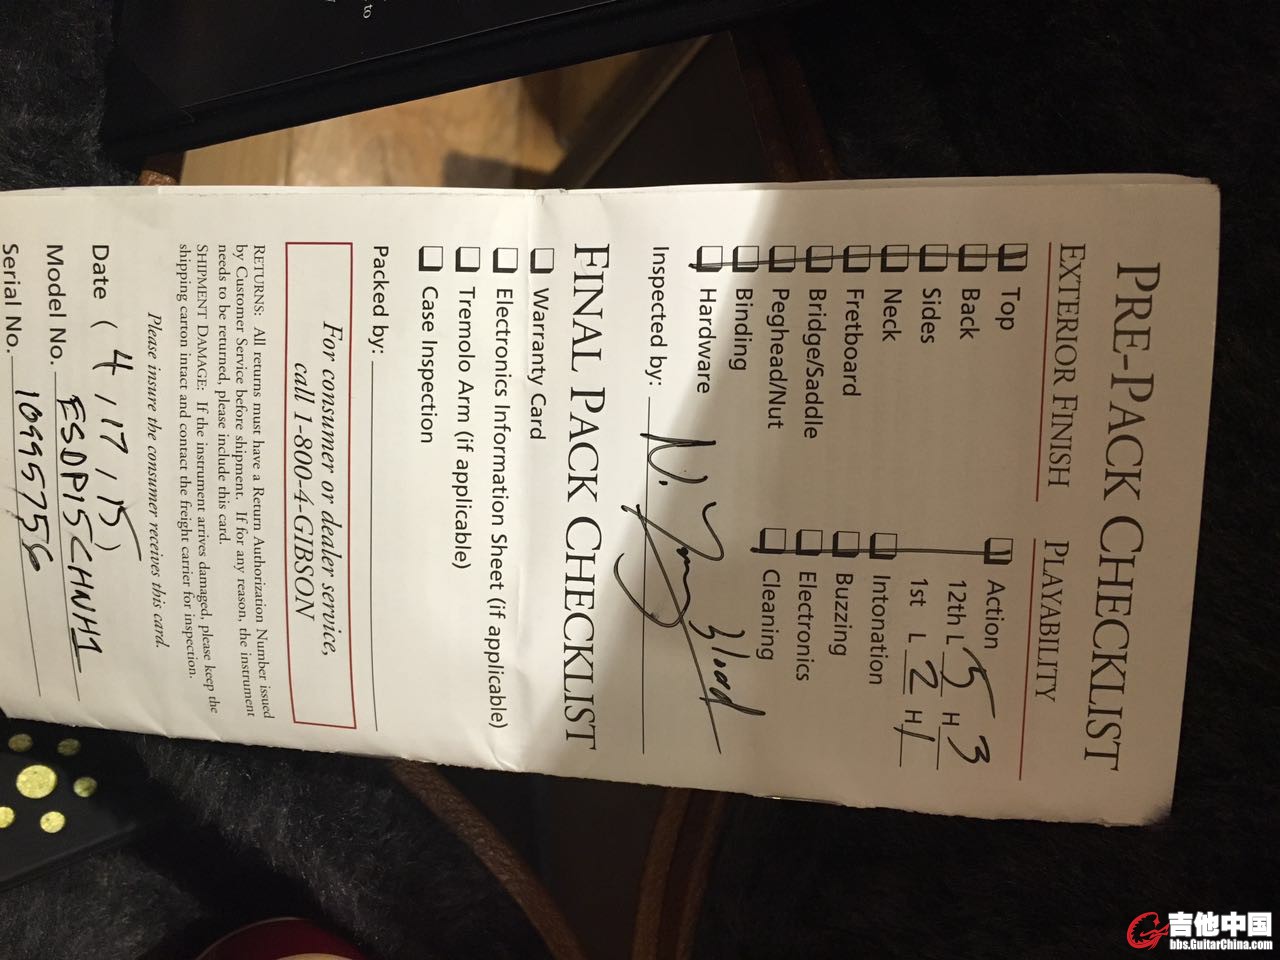 PRE-PACK CHECKLIST
EXTERIOR FINISH
Top
Back
Sides
Neck
Fretboard
Bridge/Saddle
Peghead/Nut
Binding
Hardware
PLAYABILITY
Action
12th L 5 H 3
1st L 2 H 1
Intonation
Buzzing
Electronics
Cleaning
Inspected by: N.
FINAL PACK CHECKLIST
Warranty Card
Electronics Information Sheet (if applicable)
Tremolo Arm (if applicable)
Case Inspection
Packed by:
For consumer or dealer service,
call 1-800-4-GIBSON
RETURNS: All returns must have a Return Authorization Number issued
by Customer Service before shipment. If for any reason, the instrument
needs to be returned, please include this card.
SHIPMENT DAMAGE: If the instrument arrives damaged, please keep the
shipping carton intact and contact the freight carrier for inspection.
Please insure the consumer receives this card.
Date ( 4 / 17 / 15 )
Model No. ESDP15CHNH1
Serial No. 109957556
to
吉他中国
bbs.GuitarChina.com